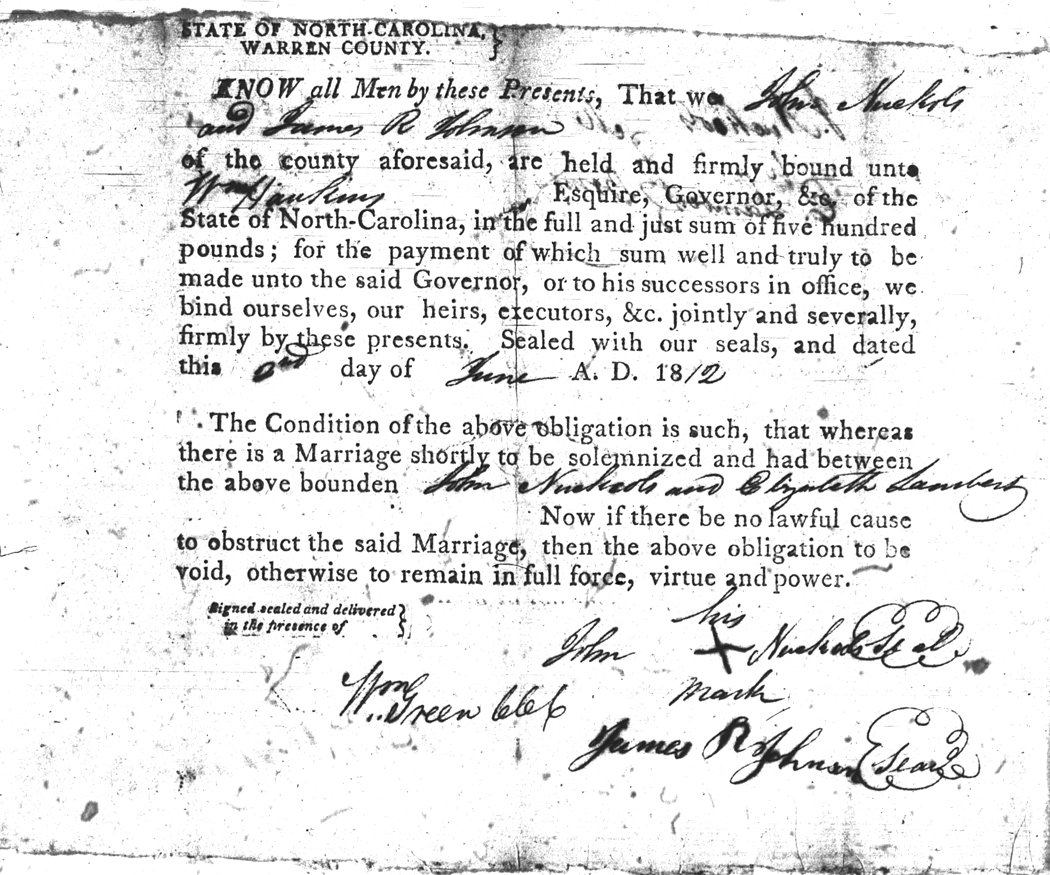 STATE OF NORTH-CAROLINA, }
WARREN COUNTY.
KNOW all Men by these Presents, That we John Nuckols
and James R Johnson
of the county aforesaid, are held and firmly bound unto
Wm Hawkins Esquire, Governor, &c. of the
State of North-Carolina, in the full and just sum of five hundred
pounds; for the payment of which sum well and truly to be
made unto the said Governor, or to his successors in office, we
bind ourselves, our heirs, executors, &c. jointly and severally,
firmly by these presents. Sealed with our seals, and dated
this 2nd day of June A. D. 1812
The Condition of the above obligation is such, that whereas
there is a Marriage shortly to be solemnized and had between
the above bounden John Nuckols and Elizabeth Lambert
Now if there be no lawful cause
to obstruct the said Marriage, then the above obligation to be
void, otherwise to remain in full force, virtue and power.
Signed sealed and delivered }
in the presence of
his
John X Nuckols Seal
mark
Wm Green
James R Johnson Seal